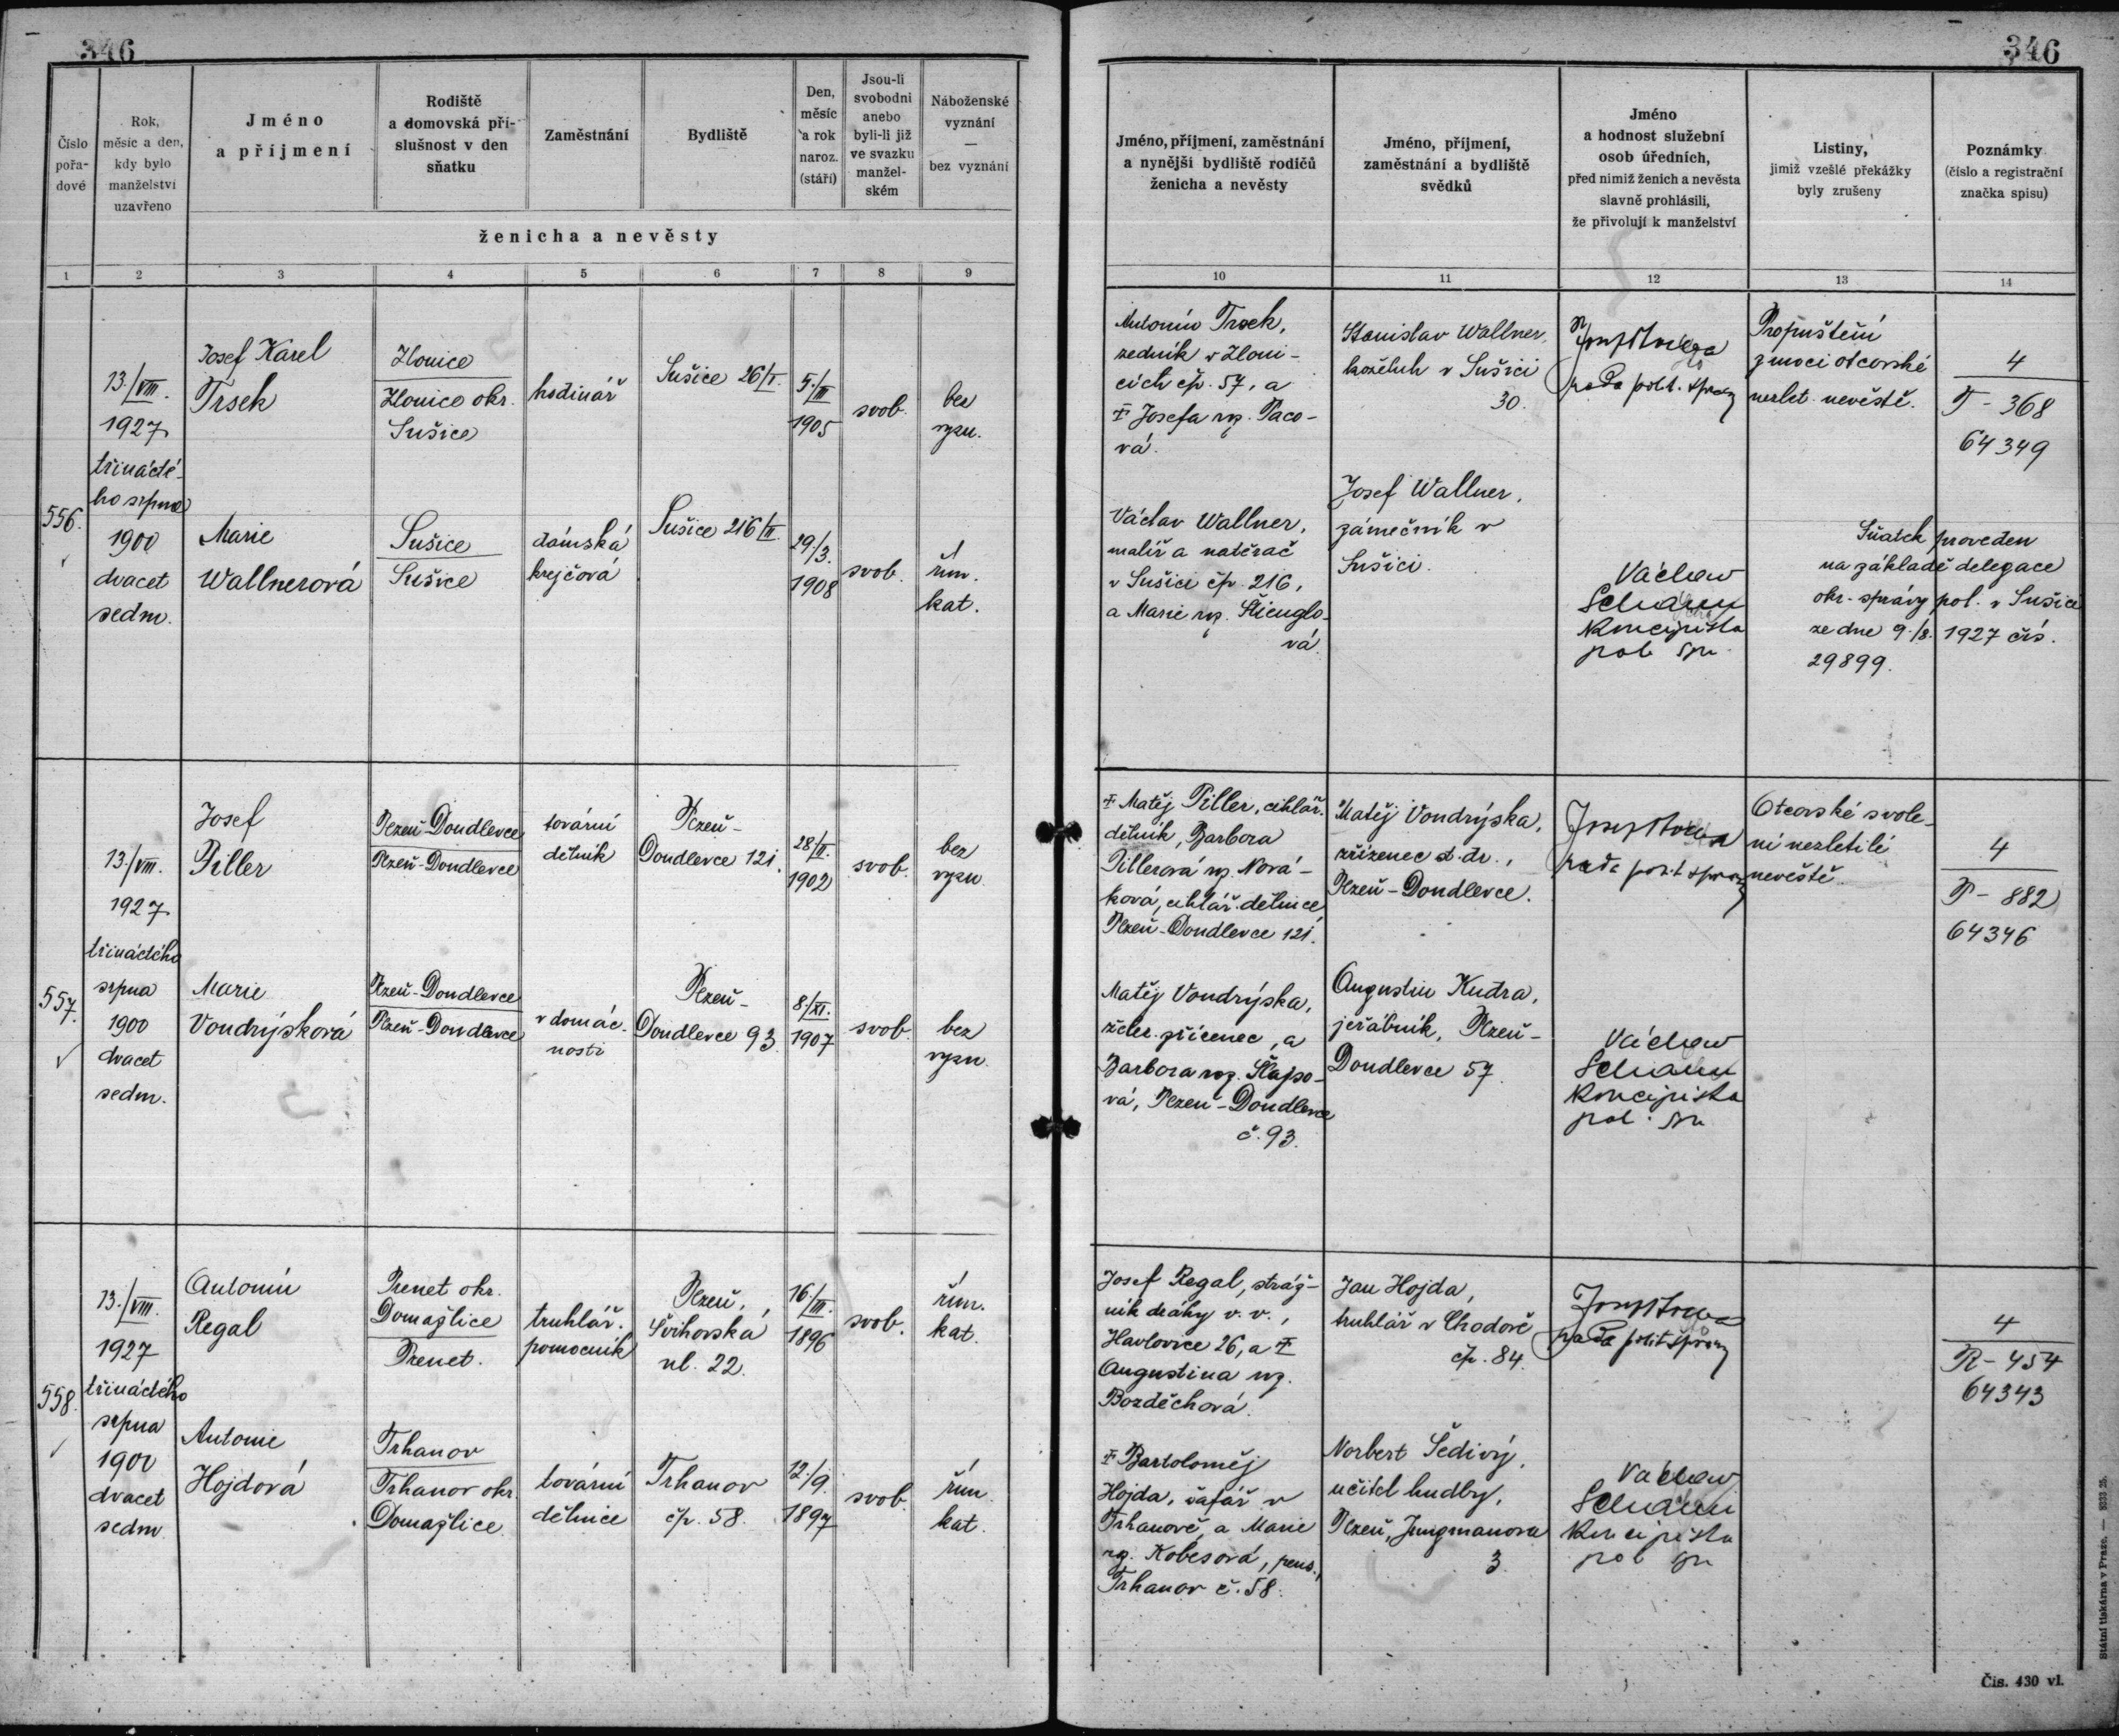 346
346
Číslo pořa-dové
Rok, měsíc a den, kdy bylo manželství uzavřeno
Jméno a příjmení
Rodiště a domovská pří-slušnost v den sňatku
Zaměstnání
Bydliště
Den, měsíc a rok naroz. (stáří)
Jsou-li svobodni anebo byli-li již ve svazku manžel-ském
Náboženské vyznání — bez vyznání
ženicha a nevěsty
Jméno, příjmení, zaměstnání a nynější bydliště rodičů ženicha a nevěsty
Jméno, příjmení, zaměstnání a bydliště svědků
Jméno a hodnost služební osob úředních, před nimiž ženich a nevěsta slavně prohlásili, že přivolují k manželství
Listiny, jimiž vzešlé překážky byly zrušeny
Poznámky (číslo a registrační značka spisu)
1 2 3 4 5 6 7 8 9 10 11 12 13 14
556.
13./VIII.
1927
třinácté-
ho srpna
1900
dvacet
sedm.
Josef Karel
Trsek
Zlonice
Zlonice okr.
Sušice
hodinář
Sušice 26/I.
5./III
1905
svob.
bez
vyzn.
Antonín Trsek,
zedník v Zloni-
cích čp. 57, a
Josefa roz. Paco-
vá.
Stanislav Wallner,
koželuh v Sušici
30.
rada polit. správy
Propuštění
z moci otcovské
nezlet. nevěstě.
4
T - 368
64349
Marie
Wallnerová
Sušice
Sušice
dámská
krejčová
Sušice 216/II.
29./3.
1908
svob.
řím.
kat.
Václav Wallner,
malíř a natěrač
v Sušici čp. 216,
a Marie roz. Štieuglo-
vá.
Josef Wallner,
zámečník v
Sušici.
Václav
koncipista
pol. spr.
Sňatek proveden
na základě delegace
okr. správy pol. v Sušici
ze dne 9./8. 1927 čís.
29899.
557.
13./VIII.
1927
třináctého
srpna
1900
dvacet
sedm.
Josef
Piller
Plzeň-Doudlevce
Plzeň-Doudlevce
tovární
dělník
Plzeň-
Doudlevce 121.
28/II.
1902
svob.
bez
vyzn.
Matěj Piller, cihlář.
dělník, Barbora
Pillerová roz. Nová-
ková, cihlář. dělnice
Plzeň-Doudlevce 121.
Matěj Vondrýska,
zřízenec st. dr.,
Plzeň-Doudlevce.
rada polit. správy
Otcovské svole-
ní nezletilé
nevěstě.
4
P - 882
64346
Marie
Vondrýsková
Plzeň-Doudlevce
Plzeň-Doudlevce
v domác-
nosti
Plzeň-
Doudlevce 93.
8/XI.
1907
svob.
bez
vyzn.
Matěj Vondrýska,
želez. zřízenec, a
Barbora roz. Šlapo-
vá, Plzeň-Doudlevce
č. 93.
Augustin Kudra,
jeřábník, Plzeň-
Doudlevce 57.
Václav
koncipista
pol. spr.
558.
13./VIII.
1927
třináctého
srpna
1900
dvacet
sedm.
Antonín
Regal
Prenet okr.
Domažlice
Prenet.
truhlář.
pomocník
Plzeň,
Švihovská
ul. 22.
16./III.
1896
svob.
řím.
kat.
Josef Regal, stráž-
ník dráhy v. v.,
Havlovice 26, a
Augustina roz.
Bozděchová.
Jan Hojda,
truhlář v Chodově
čp. 84.
rada polit. správy
4
R - 454
64343
Antonie
Hojdová
Trhanov
Trhanov okr.
Domažlice.
tovární
dělnice
Trhanov
čp. 58.
12./9.
1897
svob.
řím.
kat.
Bartoloměj
Hojda, šafář v
Trhanově, a Marie
roz. Kobesová, pens.,
Trhanov č. 58.
Norbert Šedivý,
učitel hudby,
Plzeň, Jungmanova
3.
Václav
koncipista
pol. spr.
Státní tiskárna v Praze. — 9333 25.
Čís. 430 vl.